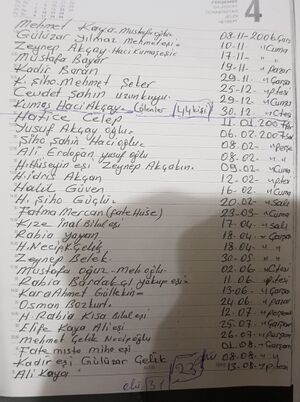 PERŞEMBE
4
Mehmet Kaya Mustafaoğlu 08-11-2006 Çarş
Gülüzar Yılmaz Mehmet eşi 10-11 - " Cuma
Zeynep Akçay Hacı Kumaş eşi 17-11 - "
Mustafa Bayar 19-11 " Pazar
Kadir Soran 29-11 " Çarş
H. Şiho Mehmet Şeker 25-12 " P.tesi
Cevdet Şahin uzunkuyu 29-12 " Cuma
Kumaş Hacı Akçay (Ölenler 44 kişi) 30.12 " C.tesi
Hatice Celep 11 01 2007
Yusuf Akçay oğlu 06.02.2007 Salı
Şiho Şahin Hacıoğlu 08-02- " Perşe
Ali Erdoğan yusuf oğlu 08.02- " "
H. Hüseyin eşi Zeynep Akçakın 09.02- " Cuma
H. İdris Akçan 12.02 " P.tesi
Halil Güven 16-02 " Cuma
H. Şiho Güçlü 20.02 " Salı
Fatma Mercan (fate Hüse) 23-03 " Cuma
Kize İnal Bilal eşi 17-04- " Salı
Rabia yayan 18-04- " Çarşa
H. Necip Çelik 18.04 " "
Zeynep Belek 30-05 " "
Mustafa oğuz - Meh oğlu 02.06 " C.tesi
Rabia Bardakçı yakup eşi 11 06 " P.tesi
Kara Ahmet Gültekin 13-06 " Çarşa
Osman Bozkurt 24.06 " Pazar
H. Rabia Kısa Bilal eşi 12.07 " Perşem
Elife Kaya Ali eşi 25.07 " Çarşam
Mehmet Çelik Necipoğlu 26.07 " Perşem
Fate miste mihe eşi 01-08 " Çarşam
Kadir eşi Gülüzar Çelik 08-08- " "
Ali Kaya 13-08 " P.tesi
23
ölü 31